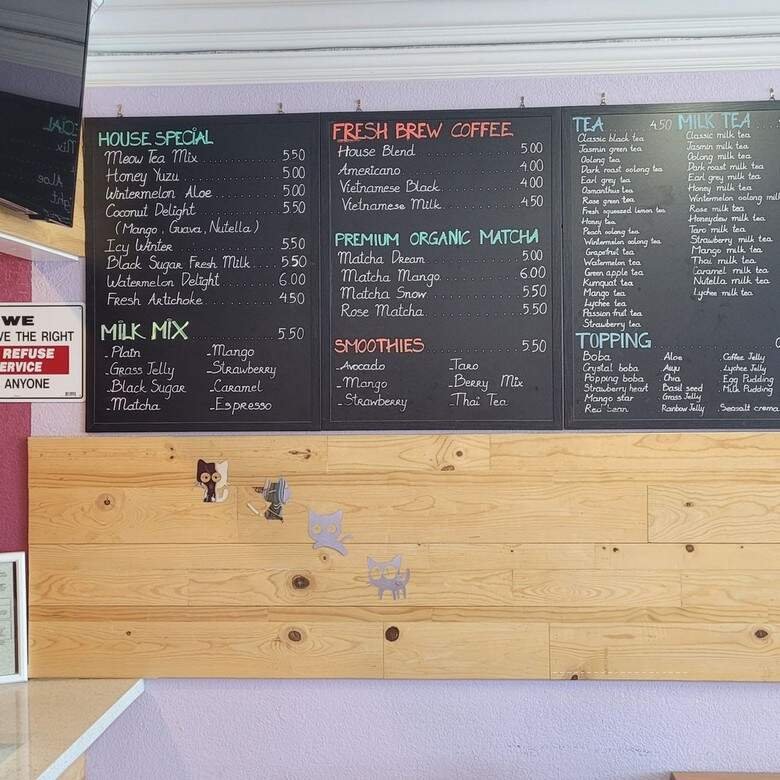 WE
VE THE RIGHT
REFUSE
ERVICE
ANYONE
HOUSE SPECIAL
Meow Tea Mix 5.50
Honey Yuzu 5.00
Wintermelon Aloe 5.00
Coconut Delight 5.50
(Mango, Guava, Nutella)
Icy Winter 5.50
Black Sugar Fresh Milk 5.50
Watermelon Delight 6.00
Fresh Artichoke 4.50
MILK MIX 5.50
-Plain -Mango
-Grass Jelly -Strawberry
-Black Sugar -Caramel
-Matcha -Espresso
FRESH BREW COFFEE
House Blend 5.00
Americano 4.00
Vietnamese Black 4.00
Vietnamese Milk 4.50
PREMIUM ORGANIC MATCHA
Matcha Dream 5.00
Matcha Mango 6.00
Matcha Snow 5.50
Rose Matcha 5.50
SMOOTHIES 5.50
-Avocado -Taro
-Mango -Berry Mix
-Strawberry -Thai Tea
TEA 4.50
Classic black tea
Jasmin green tea
Oolong tea
Dark roast oolong tea
Earl grey tea
Osmanthus tea
Rose green tea
Fresh squeezed lemon tea
Honey tea
Peach oolong tea
Wintermelon oolong tea
Grapefruit tea
Watermelon tea
Green apple tea
Kumquat tea
Mango tea
Lychee tea
Passion fruit tea
Strawberry tea
MILK TEA
Classic milk tea
Jasmin milk tea
Oolong milk tea
Dark roast milk tea
Earl grey milk tea
Honey milk tea
Wintermelon oolong milk
Rose milk tea
Honeydew milk tea
Taro milk tea
Strawberry milk tea
Mango milk tea
Thai milk tea
Caramel milk tea
Nutella milk tea
Lychee milk tea
TOPPING
Boba Aloe Coffee Jelly
Crystal boba Aiyu Lychee Jelly
Popping boba Chia Egg Pudding
Strawberry heart Basil seed Milk Pudding
Mango star Grass Jelly
Red bean Rainbow Jelly Seasalt crema